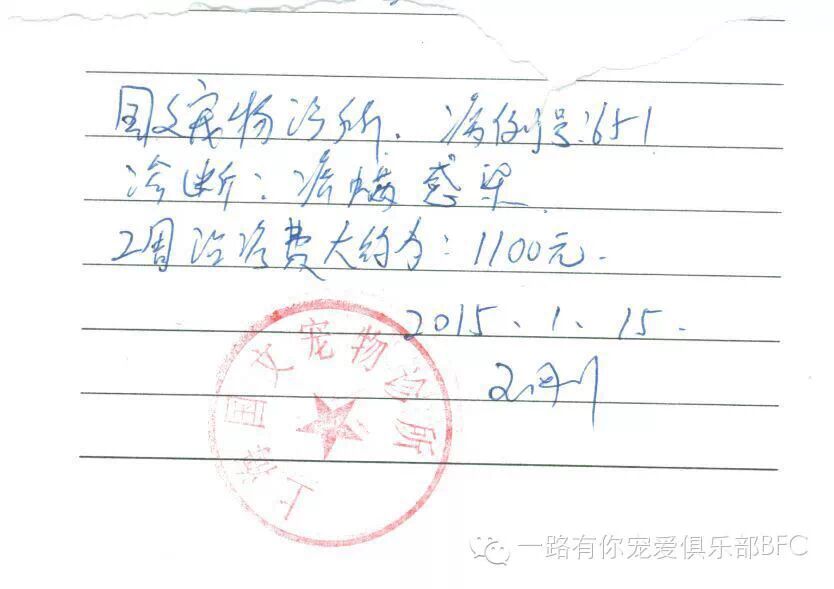 国文宠物诊所. 病例号:651
诊断: 疥螨感染.
2周治疗费大约为: 1100元.
2015.1.15.
王刚
上海国文宠物诊所
一路有你宠爱俱乐部BFC